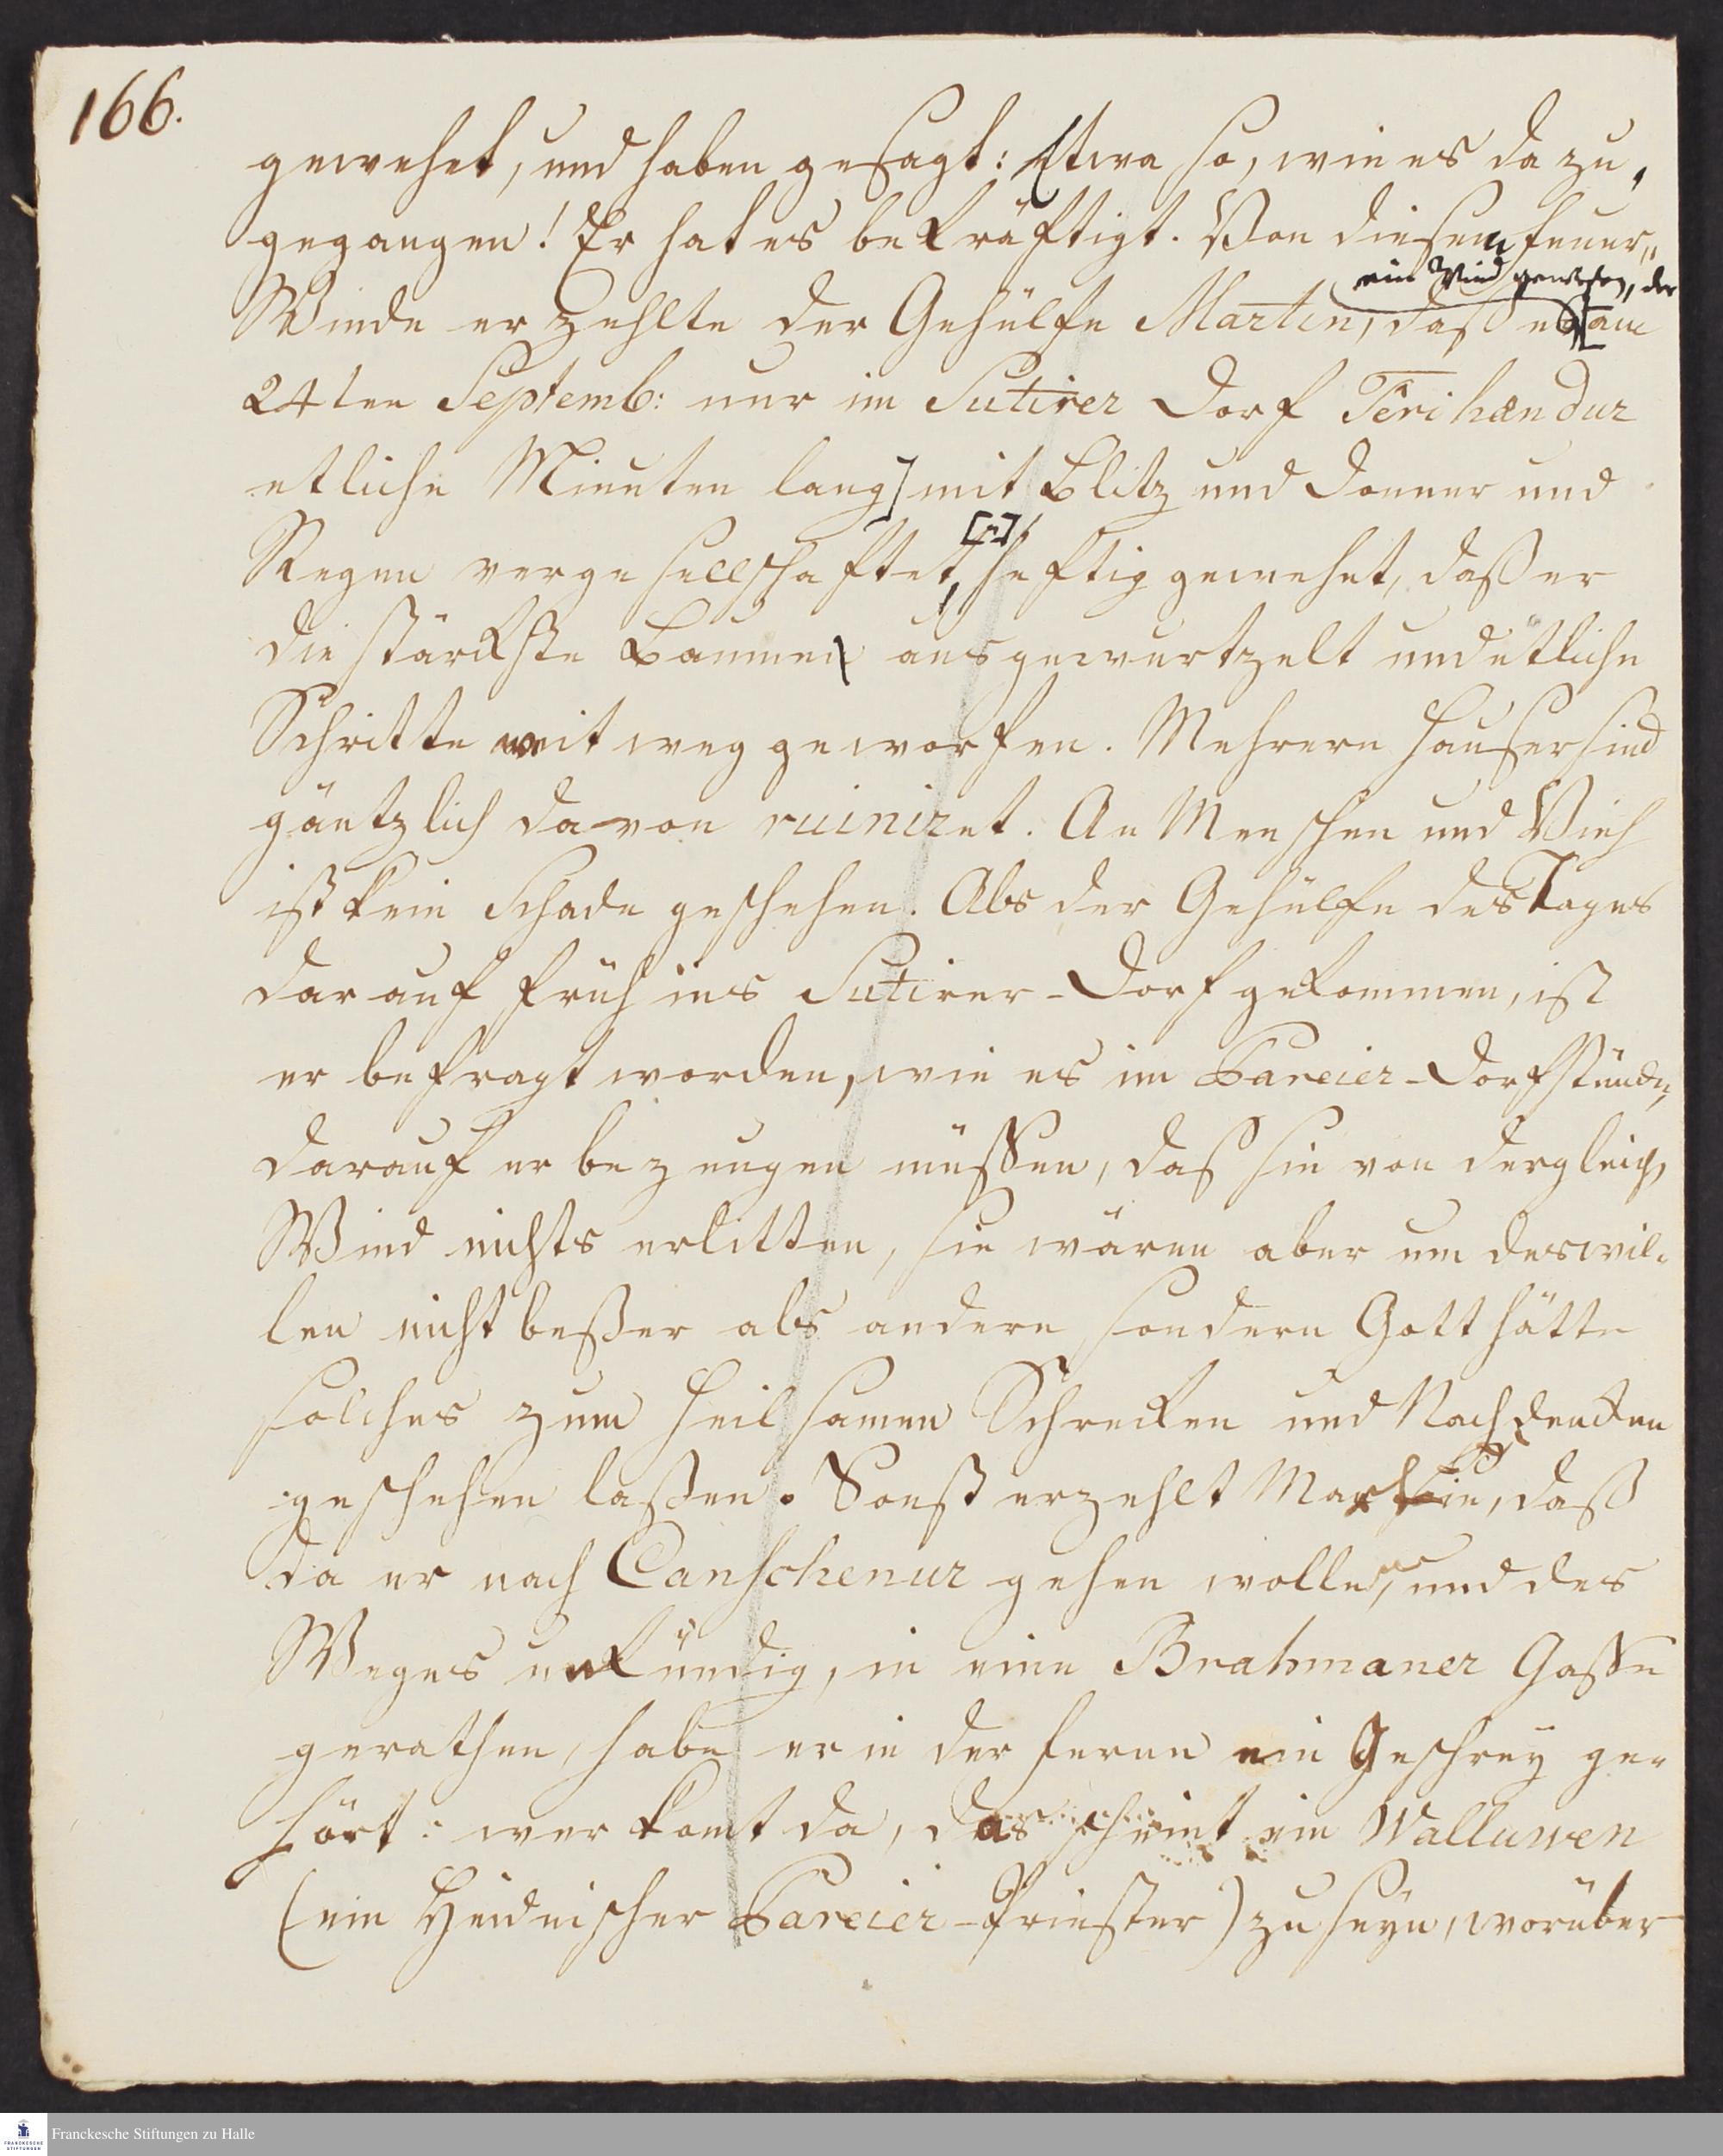 166.
gewehet, und haben gesagt: Etwa so, wie es da zu,
gegangen! Er hat es bekräftigt. Von diesem feuer„
ein Wind gewesen, der
Winde erzehlte der Gehülfe Martin, daß es am
24ten Septemb: nur im Sutirer Dorf Terihændur
etliche Minuten lang] mit Blitz und Donner und
Regen vergesellschaftet, heftig gewehet, daß er
die stärckste Baume ausgewurtzelt und etliche
Schritte weit weg geworfen. Mehrere Hauser sind
gäntzlich davon ruiniret. An Menschen und Vieh
ist kein Schade geschehen. Als der Gehülfe des Tages
darauf früh ins Sutirer-Dorf gekommen, ist
er befragt worden, wie es im Bareier-Dorf stünde,
darauf er bezeugen müssen, daß sie von dergleich
Wind nichts erlitten, sie wären aber um deswil-
len nicht beßer als andere sondern Gott hätte
solches zum heilsamen Schrecken und Nachdencken
geschehen laßen. Sonst erzehlt Martin, daß
da er nach Canschenur gehen wollen, und des
Weges unkündig, in eine Brahmaner Gasse
gerathen, habe er in der ferne ein Geschrey ge-
hört: wer komt da, das scheint ein Walluwen
(ein Heidnischer Bareier-Priester) zu seyn, worüber
Franckesche Stiftungen zu Halle
FRANCKESCHE STIFTUNGEN